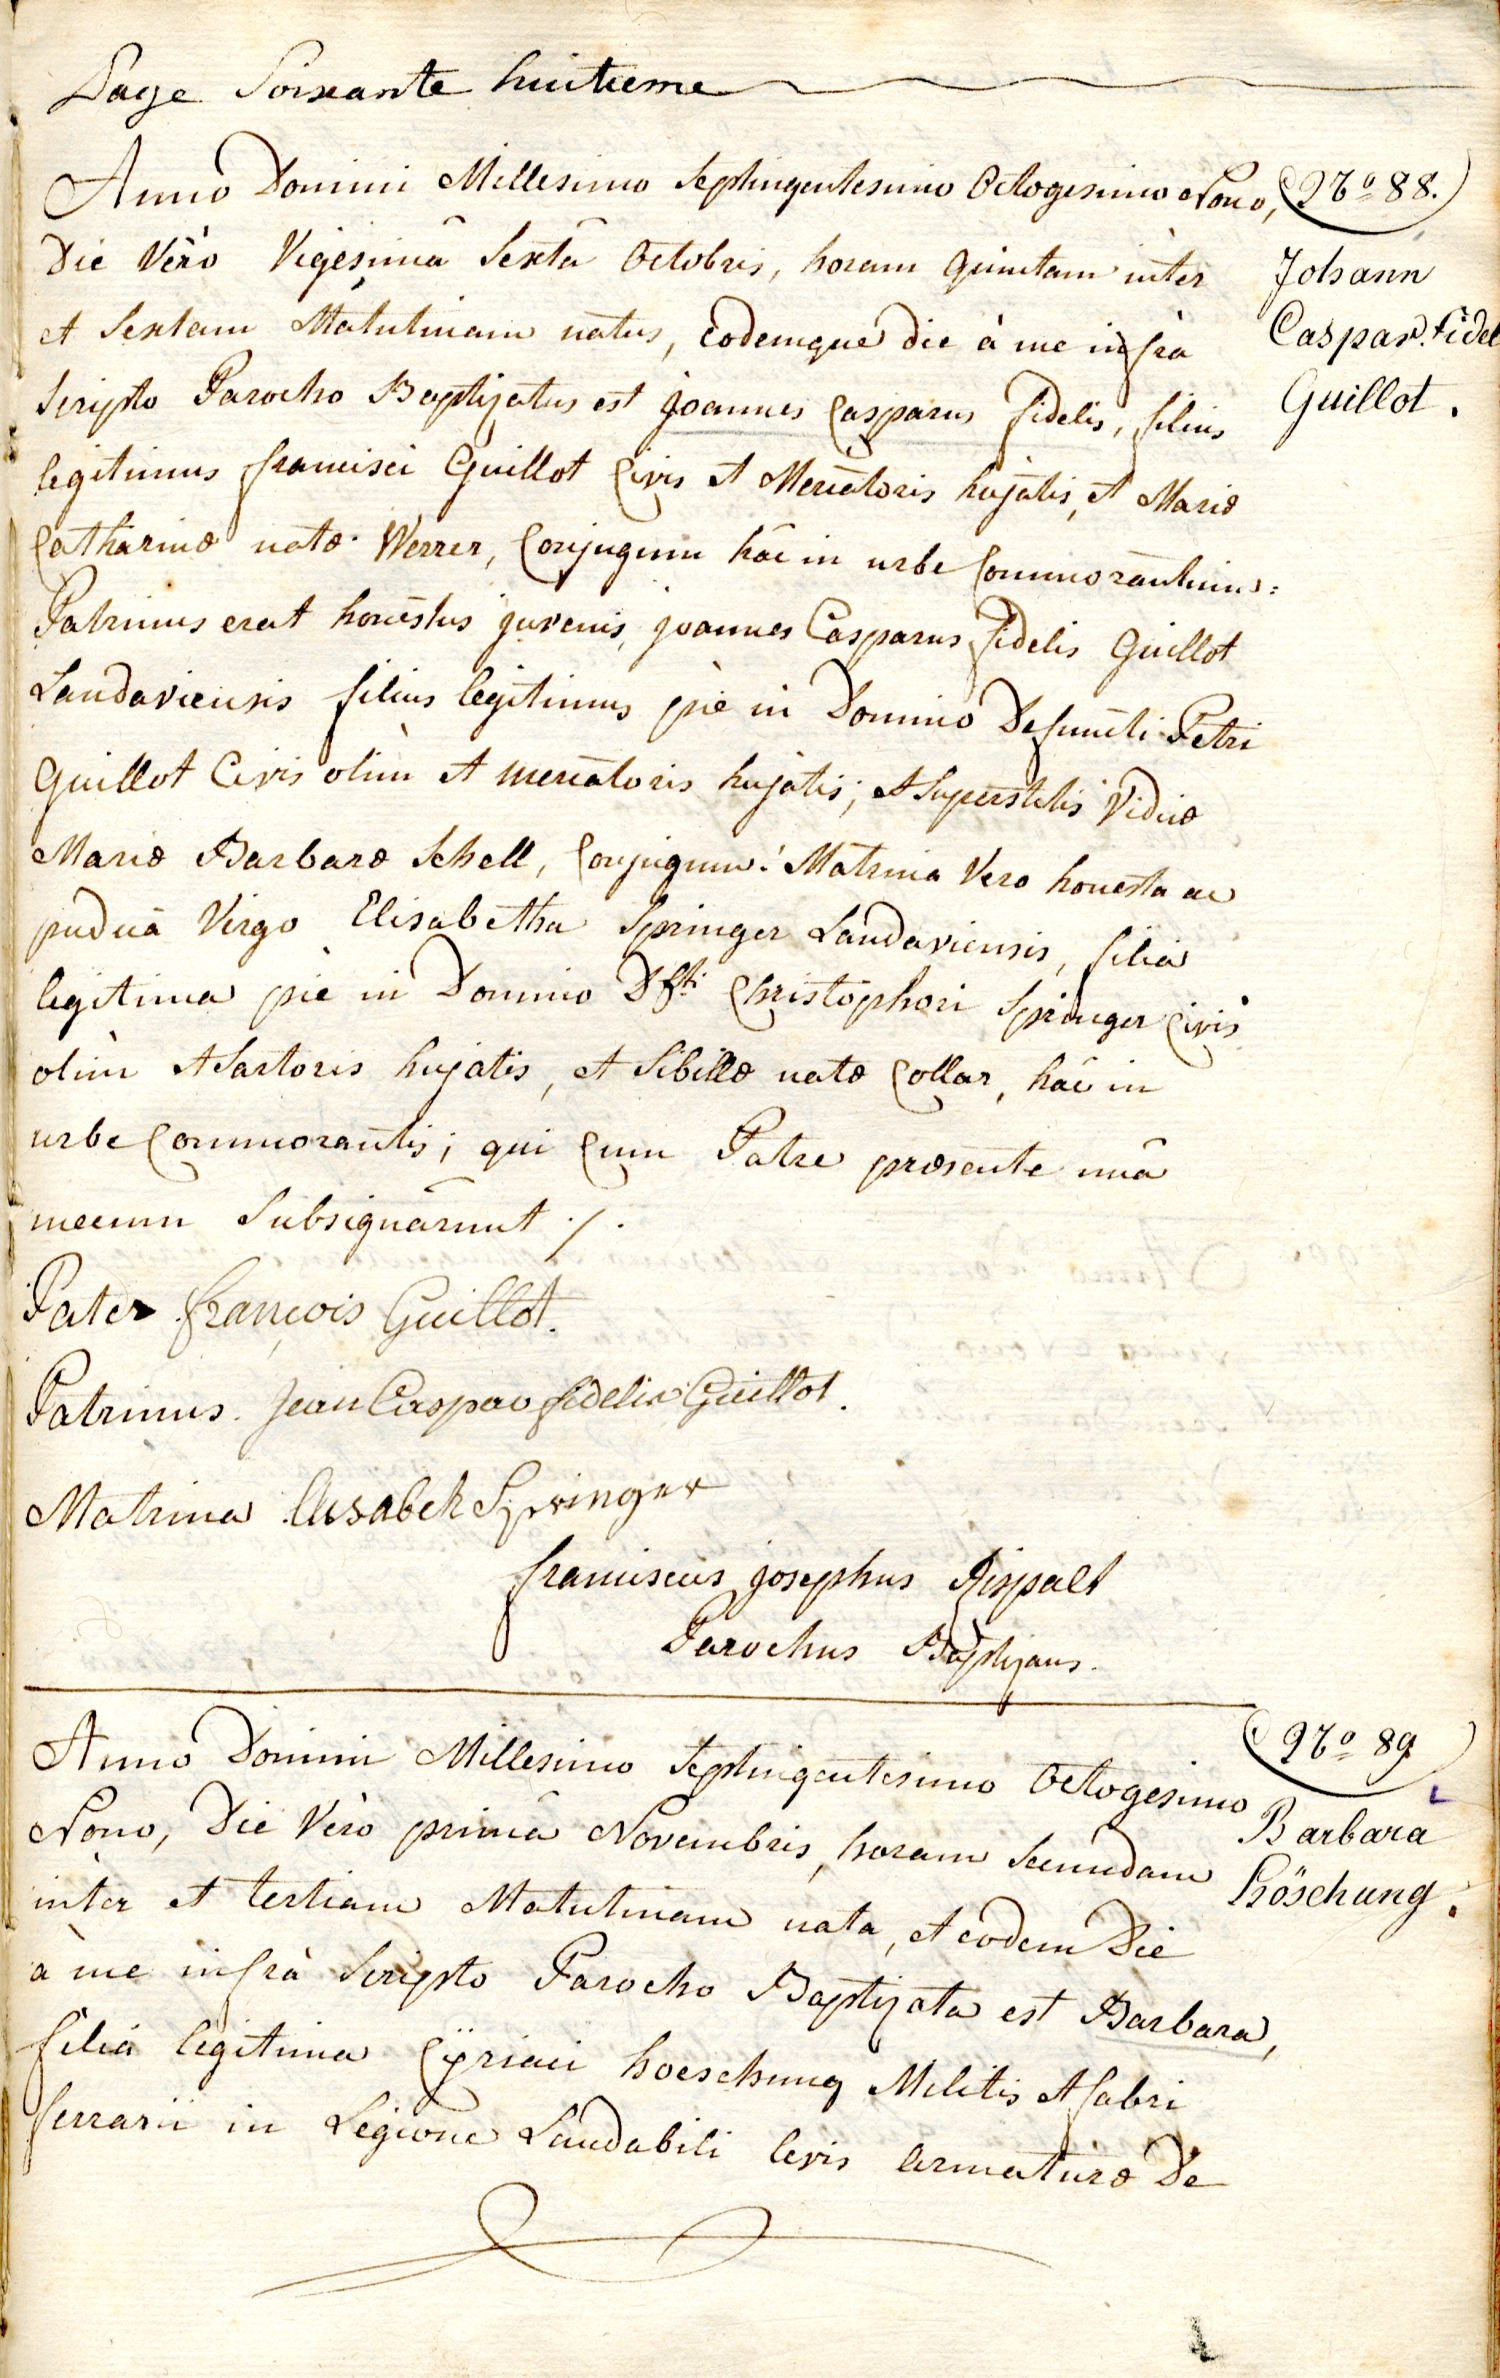 Page Soixante huitieme
Anno Domini Millesimo Septingentesimo Octogesimo Nono,
Die Verò Vigesimâ Sextâ Octobris, horam quintam inter
et Sextam Matutinam natus, eodemque die à me infrà
Scripto Parocho Baptizatus est joannes Casparus fidelis, filius
legitimus francisci Guillot Civis et Mercatoris hujatis, et Mariæ
Catharinæ natæ Werrer, Conjugum hâc in urbe Commorantium:
Patrinus erat honestus juvenis, joannes Casparus fidelis Guillot
Landaviensis filius legitimus piè in Domino Defuncti Petri
Guillot Civis olim et mercatoris hujatis; et Superstitis Viduæ
Mariæ Barbaræ Schell, Conjugum: Matrina Vero honesta ac
pudica Virgo Elisabetha Springer Landaviensis, filia
legitima piè in Domino Dfti Christophori Springer Civis
olim et Sartoris hujatis, et Sibillæ natæ Collar, hâc in
urbe Commorantis; qui Cum Patre præsente unâ
mecum Subsignârunt ./.
Pater françois Guillot.
Patrinus. jean Caspar fidelis Guillot.
Matrina Elisabeh Springer
franciscus josephus Rispalt
Parochus Baptizans.
No 88.
Johann
Caspar. Fidel
Guillot.
Anno Domini Millesimo Septingentesimo Octogesimo
Nono, Die Verò primâ Novembris, horam Secundam
inter et tertiam Matutinam nata, et eodem Die
à me infrà Scripto Parocho Baptizata est Barbara,
filia legitima Cÿriaci hoeschung Militis et fabri
ferrarii in Legione Laudabili levis armaturæ De
No 89
Barbara
Höschung.